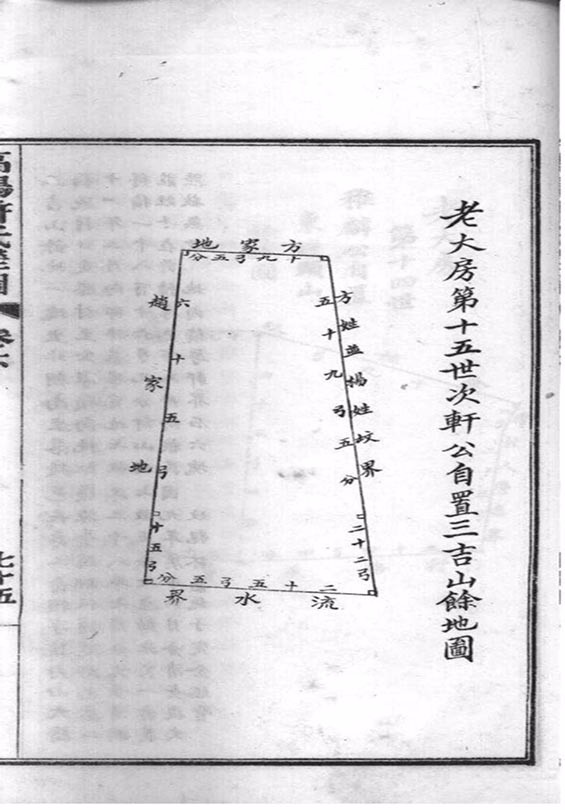 老大房第十五世次軒公自置三吉山餘地圖
方家地
十九弓五分
方姓並楊姓坟界
五十九弓五分
二十二弓
趙家地
六十五弓
十五弓
二十五弓五分
流水界
七十五